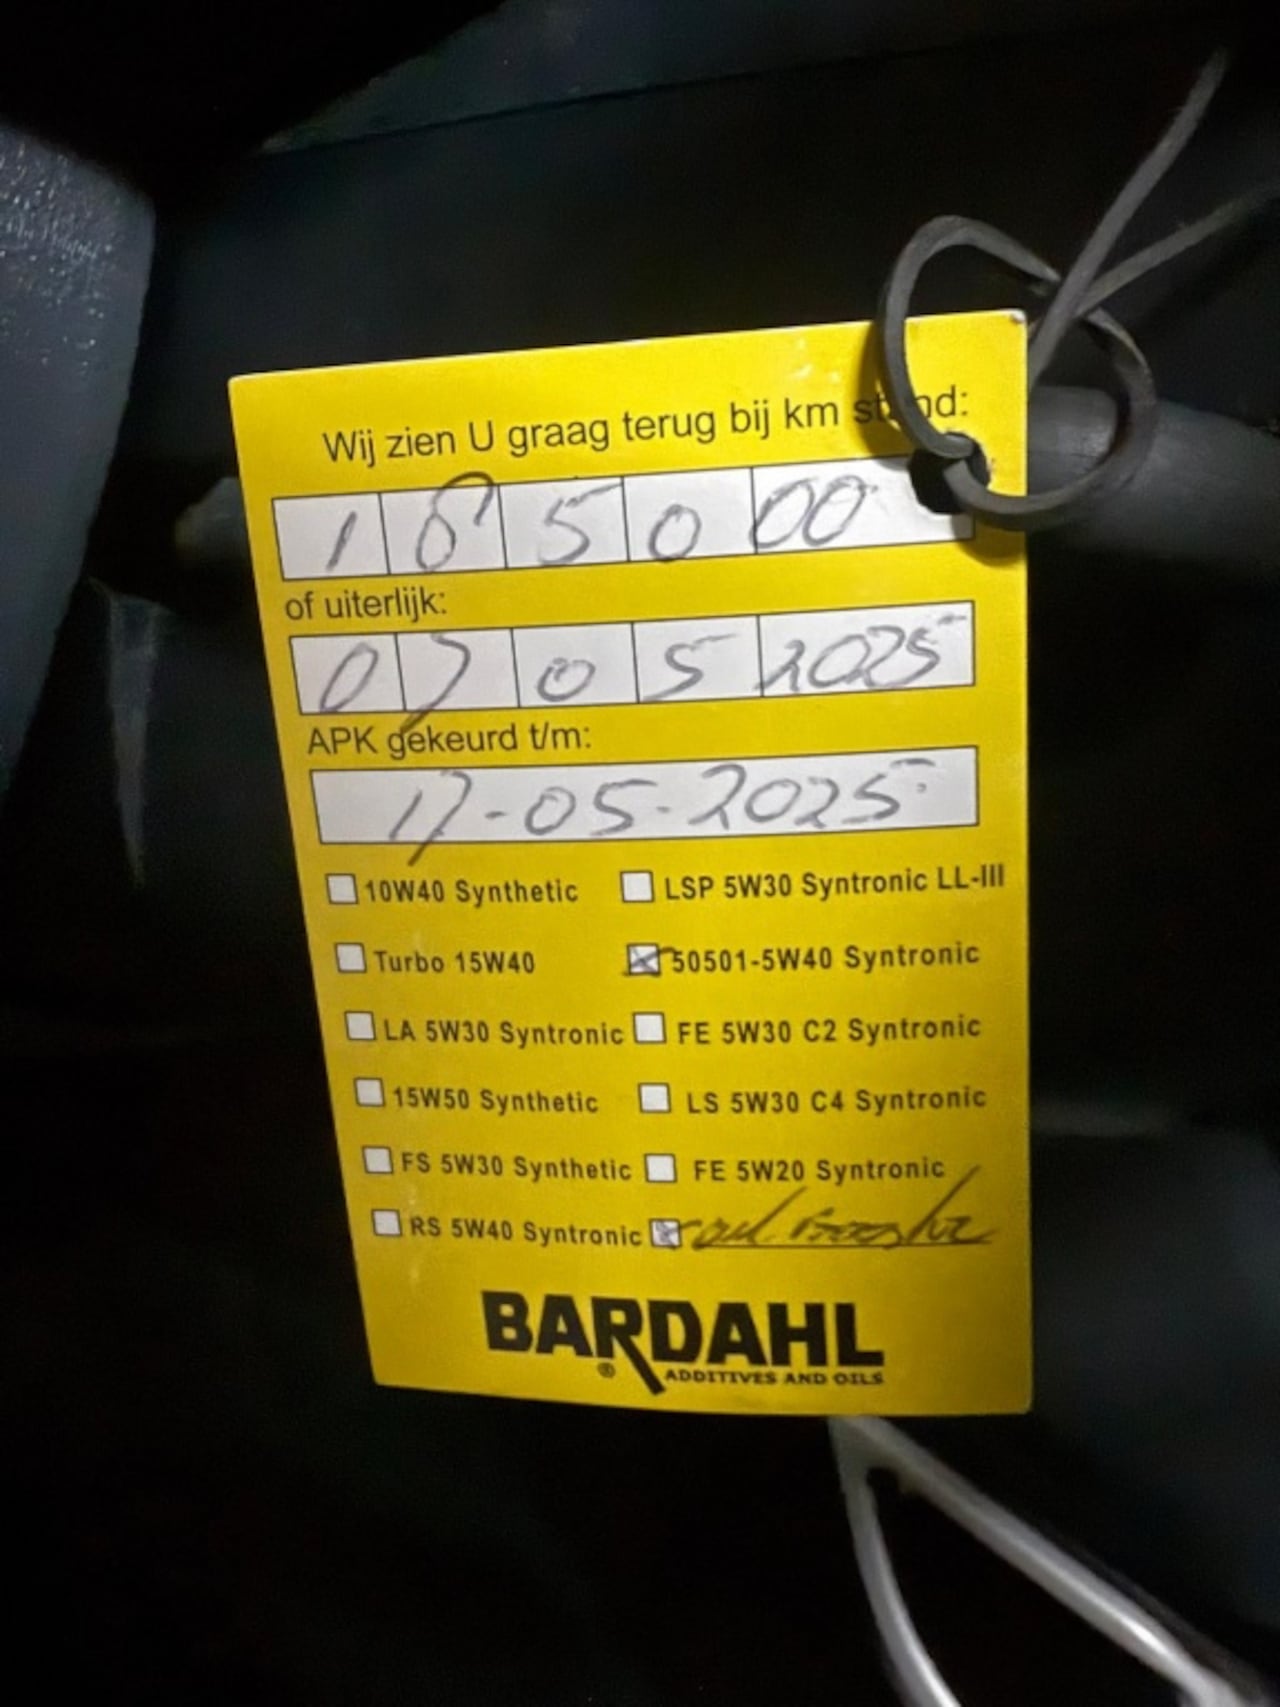 Wij zien U graag terug bij km stand:
1 8 5 0 00
of uiterlijk:
0 7 0 5 2025
APK gekeurd t/m:
17-05-2025
10W40 Synthetic
LSP 5W30 Syntronic LL-III
Turbo 15W40
50501-5W40 Syntronic
LA 5W30 Syntronic
FE 5W30 C2 Syntronic
15W50 Synthetic
LS 5W30 C4 Syntronic
FS 5W30 Synthetic
FE 5W20 Syntronic
RS 5W40 Syntronic
BARDAHL
® ADDITIVES AND OILS